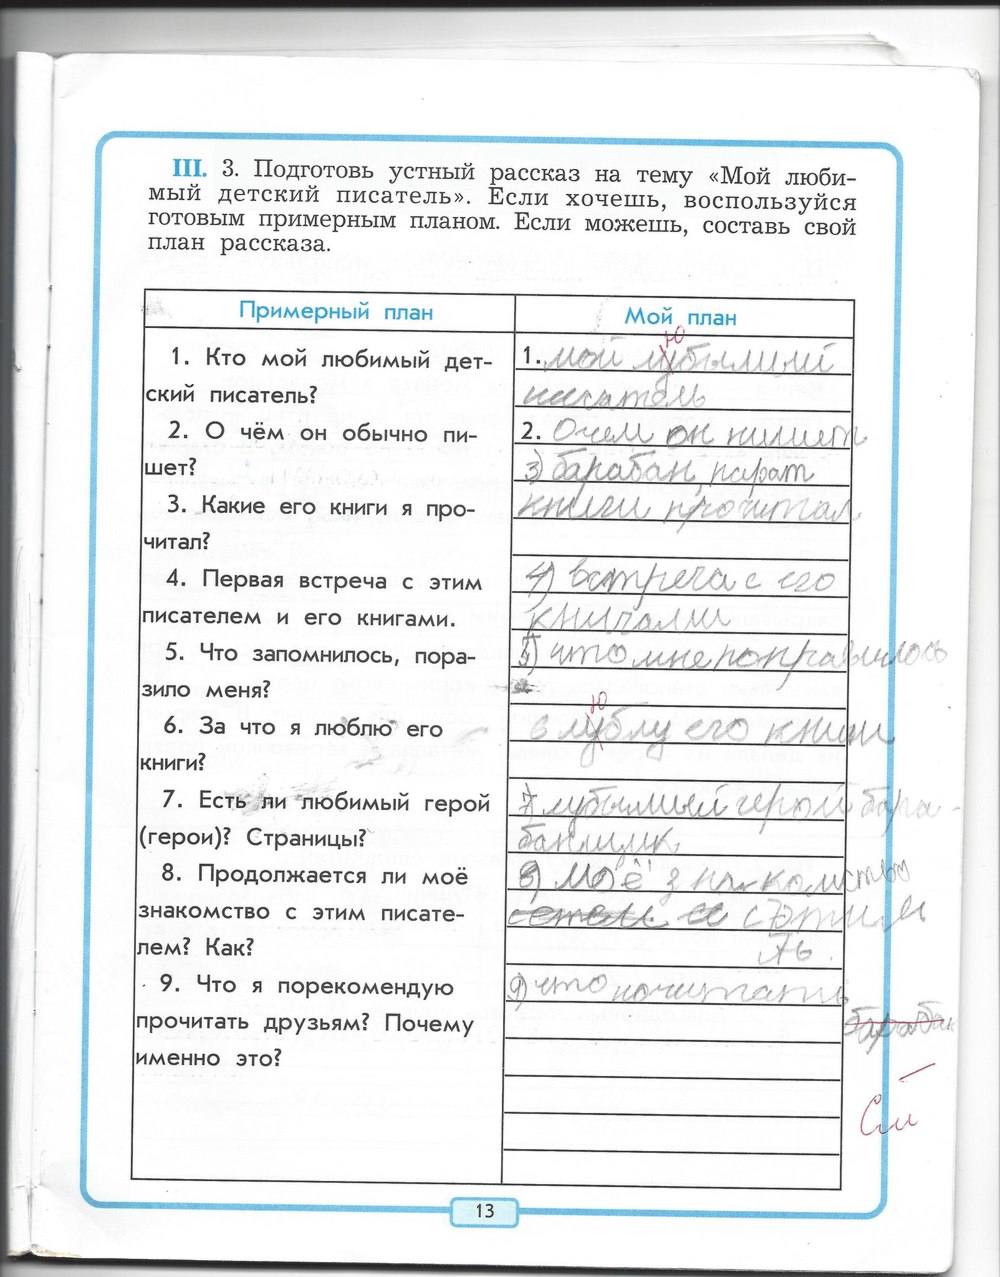 III. 3. Подготовь устный рассказ на тему «Мой люби-
мый детский писатель». Если хочешь, воспользуйся
готовым примерным планом. Если можешь, составь свой
план рассказа.
Примерный план
1. Кто мой любимый дет-
ский писатель?
2. О чём он обычно пи-
шет?
3. Какие его книги я про-
читал?
4. Первая встреча с этим
писателем и его книгами.
5. Что запомнилось, пора-
зило меня?
6. За что я люблю его
книги?
7. Есть ли любимый герой
(герои)? Страницы?
8. Продолжается ли моё
знакомство с этим писате-
лем? Как?
9. Что я порекомендую
прочитать друзьям? Почему
именно это?
Мой план
ю
1. мой лубымший
писатель
2. Очем он пишет
3) барабан,
книги прочитал
4) встреча с его
книгами
5) что мне понравилось
ю
6 лублу его книги
7 лубымый герой бара-
банщик
8) моё знакомство
с этим
ль.
9) что почитать
барабан
См
13